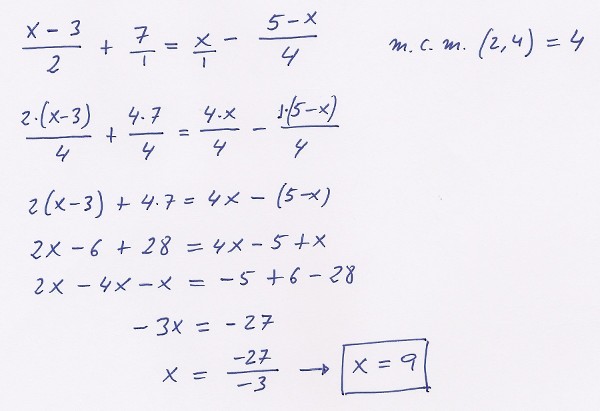 (x - 3)/2 + 7/1 = x/1 - (5-x)/4    m.c.m. (2,4) = 4
2·(x-3)/4 + 4·7/4 = 4·x/4 - 1·(5-x)/4
2(x-3) + 4·7 = 4x - (5-x)
2x - 6 + 28 = 4x - 5 + x
2x - 4x - x = -5 + 6 - 28
-3x = -27
x = -27/-3 → x = 9